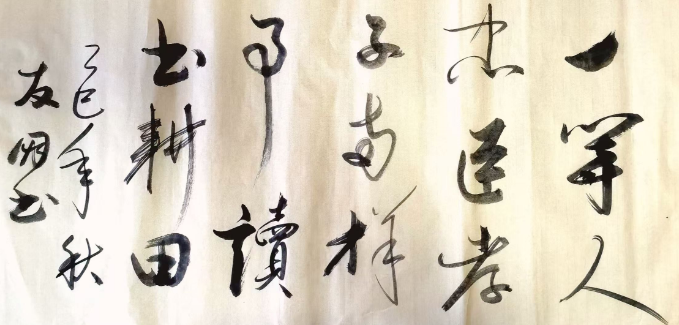 一等人
忠臣孝
子两样
事讀
书耕田
乙巳年秋
友明书